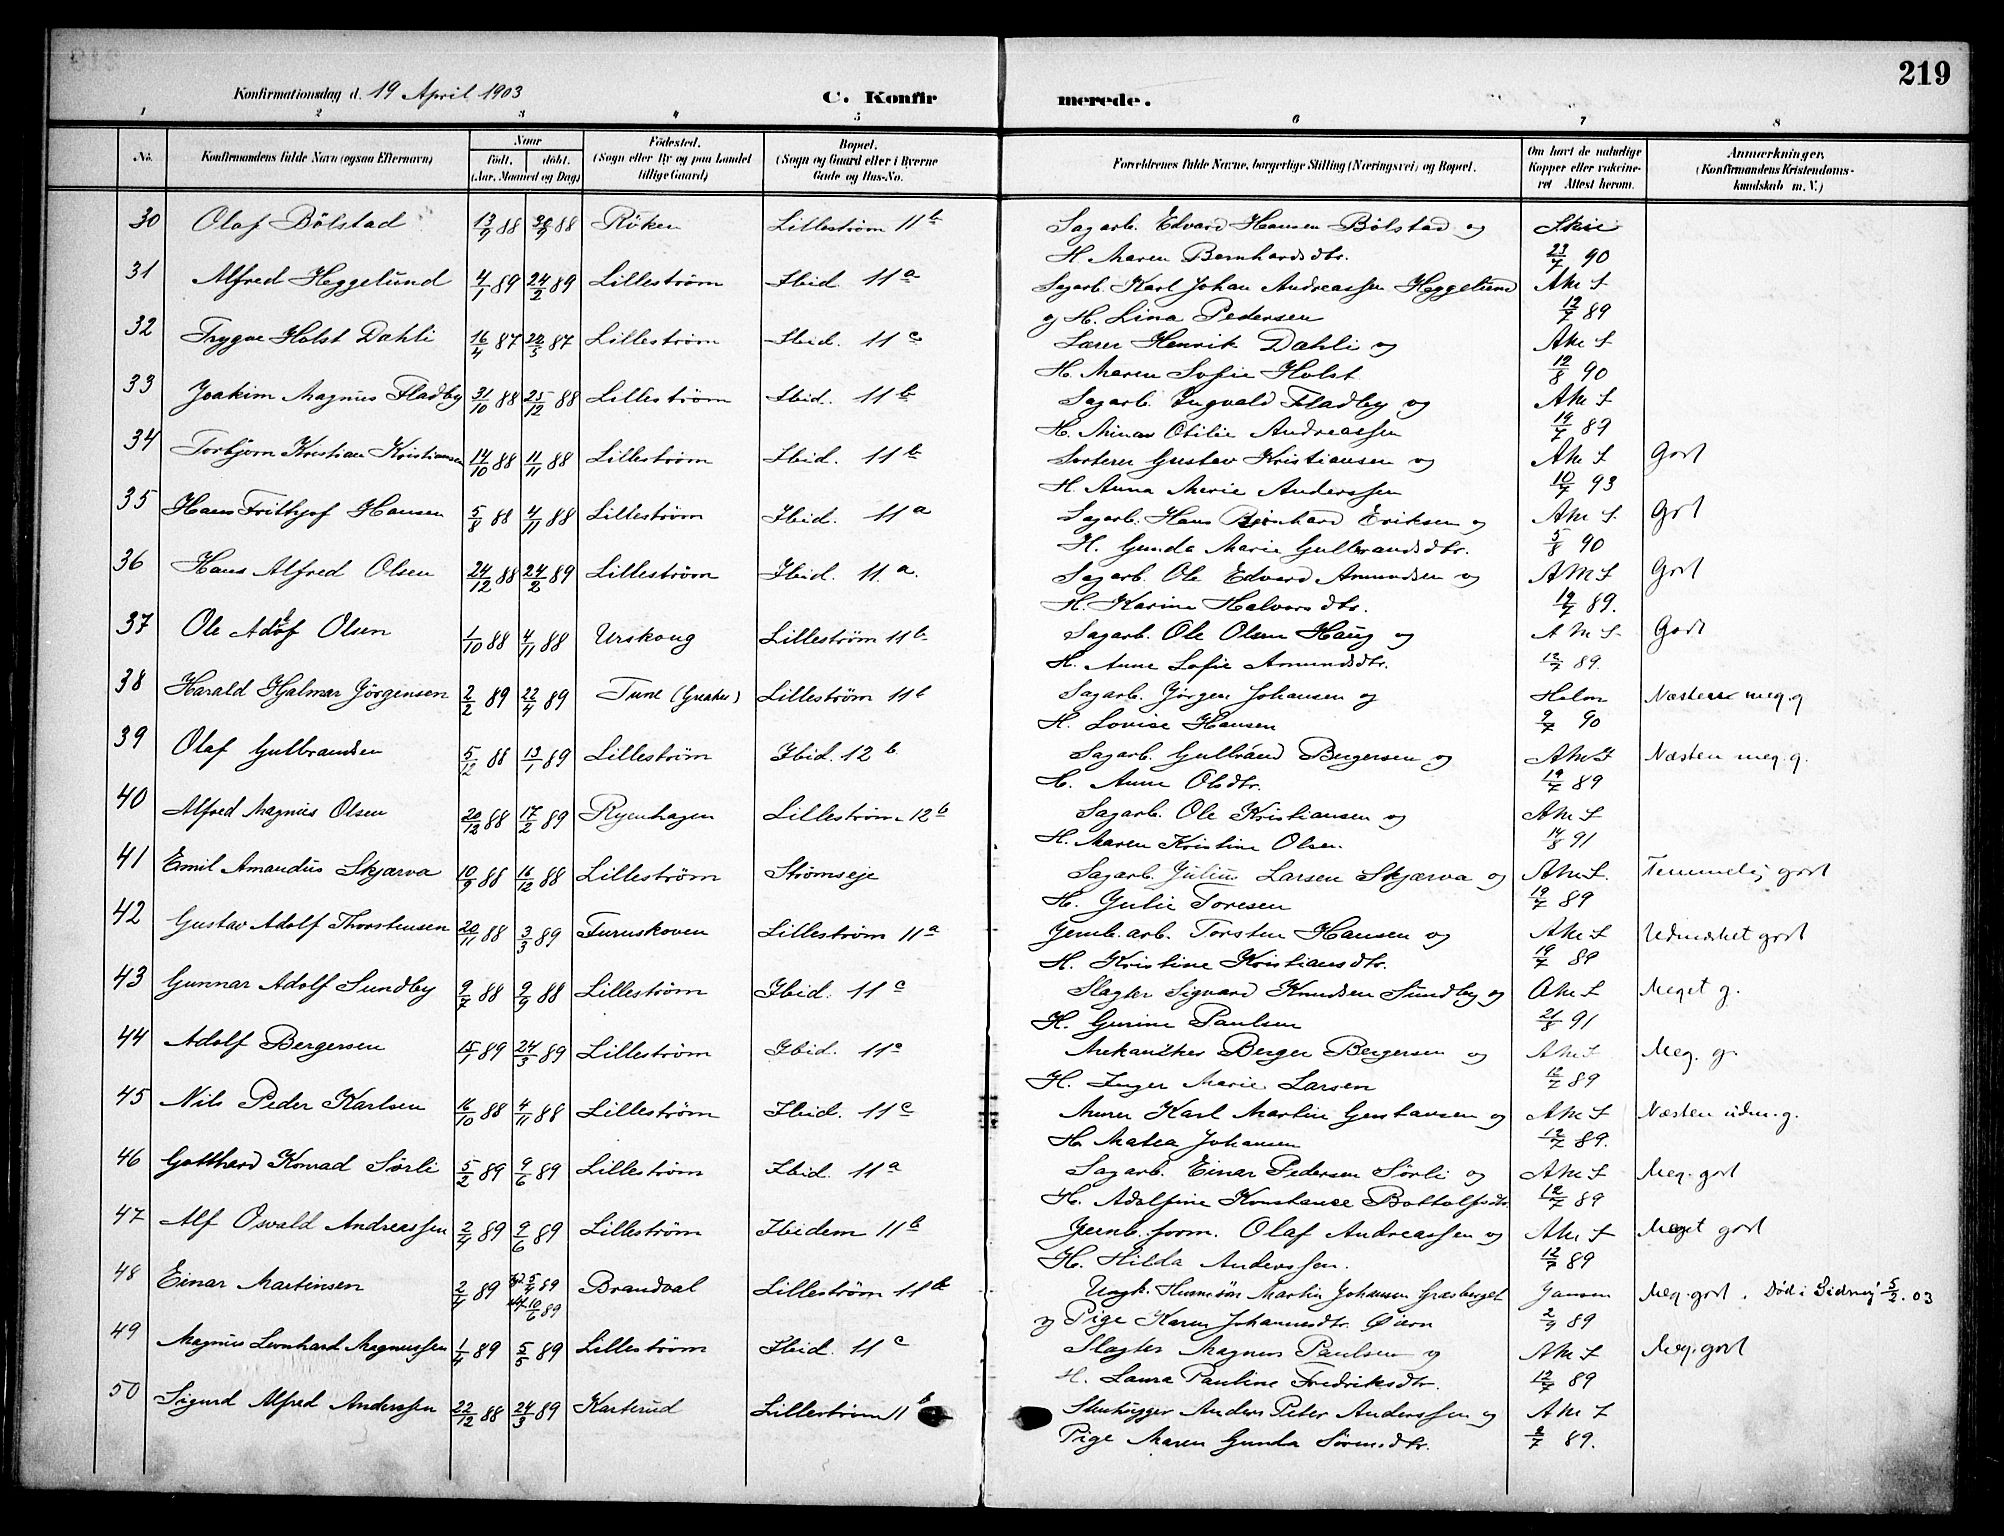 219
Konfirmationsdag d. 19 April 1903
C. Konfir
merede.
1 2 3 4 5 6 7 8
No. Konfirmandens fulde Navn (ogsaa Efternavn) Naar født, døbt. (Aar, Maaned og Dag) Fødested. (Sogn eller By og paa Landet tillige Gaard) Bopæl. (Sogn og Gaard eller i Byerne Gade og Hus-No. Forældrenes fulde Navne, borgerlige Stilling (Næringsvei) og Bopæl. Om havt de naturlige Kopper eller vakcineret Attest herom. Anmærkninger, (Konfirmandens Kristendomskundskab m. V.)
30 Olaf Bölstad 13/9 88 88 Röken Lilleström 11 b Sagarb. Edvard Hansen Bölstad og
H. Maren Bernhardsdtr. 23/7 90
31 Alfred Heggelund 4/1 89 24/2 89 Lilleström Ibid. 11 a Sagarb. Karl Johan Andreassen Heggelund
og H. Lina Pedersen 12/7 89
32 Trygve Holst Dahli 16/4 87 22/5 87 Lilleström Ibid. 11 c Lærer Henrik Dahli og
H. Maren Sofie Holst 12/8 90
33 Joakim Magnus Fladby 31/10 88 25/12 88 Lilleström Ibid. 11 b Sagarb. Ingvald Fladby og
H. Mina Otilie Andreassen 19/7 89
34 Torbjörn Kristian Kristiansen 14/10 88 11/11 88 Lilleström Ibid. 11 b Sorterer Gustav Kristiansen og Godt
H. Anna Marie Anderssen 10/7 93
35 Hans Frithjof Hansen 5/8 88 4/11 88 Lilleström Ibid. 11 a Sagarb. Hans Bernhard Eriksen og Godt
H. Gunda Marie Gulbrandsdtr. 5/8 90
36 Hans Alfred Olsen 24/12 88 24/2 89 Lilleström Ibid. 11. a. Sagarb. Ole Edvard Amundsen og Godt
H. Karine Halvorsdtr. 12/7 89.
37 Ole Adolf Olsen 1/10 88 4/11 88 Urskoug Lilleström 11 b. Sagarb. Ole Olsen Haug og Godt
H. Anne Sofie Amundsdtr. 12/7 89.
38 Harald Hjalmar Jörgensen 2/2 89 22/4 89 Tune (Greaker) Lilleström 11 b Sagarb. Jörgen Johansen og Holm Næsten meg. g
H. Lovise Hansen 9/7 90
39 Olaf Gulbrandsen 5/12 88 13/1 89 Lilleström Ibid. 12 b Sagarb. Gulbrand Bergersen og Næsten meg. g.
H. Anne Olsdtr. 19/7 89
40 Alfred Magnus Olsen 20/12 88 17/2 89 Ryenhagen Lilleström 12 b Sagarb. Ole Kristiansen og
H. Maren Kristine Olsen. 14/8 91
41 Emil Amandus Skjærva 10/9 88 16/12 88 Lilleström Strömseje Sagarb. Julius Larsen Skjærva og Temmelig godt
H. Julie Toresen 19/7 89
42 Gustav Adolf Thorstensen 20/11 88 3/3 89 Furuskoven Lilleström 11 a Jernb. arb. Torsten Hansen og Udmærket godt
H. Kristine Kristiansdtr. 19/7 89
43 Gunnar Adolf Sundby 9/7 88 9/9 88 Lilleström Ibid. 11 c Slagter Sigvard Knudsen Sundby og Meget g.
H. Gurine Paulsen 21/8 91
44 Adolf Bergersen 89 24/3 89 Lilleström Ibid. 11 Mekaniker Berger Bergersen og Meg. g.
H. Inger Marie Larsen 12/7 89
45 Nils Peder Karlsen 16/10 88 4/11 88 Lilleström Ibid. 11 c Murer Karl Martin Gustavsen og Næsten udm. g.
H. Matea Johansen 12/7 89.
46 Gotthard Konrad Sörli 5/2 89 9/6 89 Lilleström Ibid. 11 a Sagarb. Einar Pedersen Sörli og Meg. godt
H. Adolfine Konstance Bottolfsdtr. 12/7 89
47 Alf Osvald Andreassen 2/4 89 9/6 89 Lilleström Ibidem 11 b Jernb. form. Olaf Andreassen og Meget godt
H. Hilda Anderssen. 12/7 89
48 Einar Martinsen 2/4 89 5/4 89 10/6 89 Brandval Lilleström 11 b Ungk. Martin Johansen Græsberget Jansen Meg. godt. Död i 5/2. 03
og Pige Karen Johannesdtr. 2/9 89
49 Magnus Leonhard Magnussen 1/4 89 5/5 89 Lilleström Ibid. 11 c Slagter Magnus Paulsen og Meg. godt
H. Laura Pauline Fredriksdtr. 12/7 89
50 Sigurd Alfred Anderssen 22/12 88 24/3 89 Karterud Lilleström 11 b Stenhugger Anders Peter Anderssen og
Pige Maren Gunda Sörensdtr. 89.